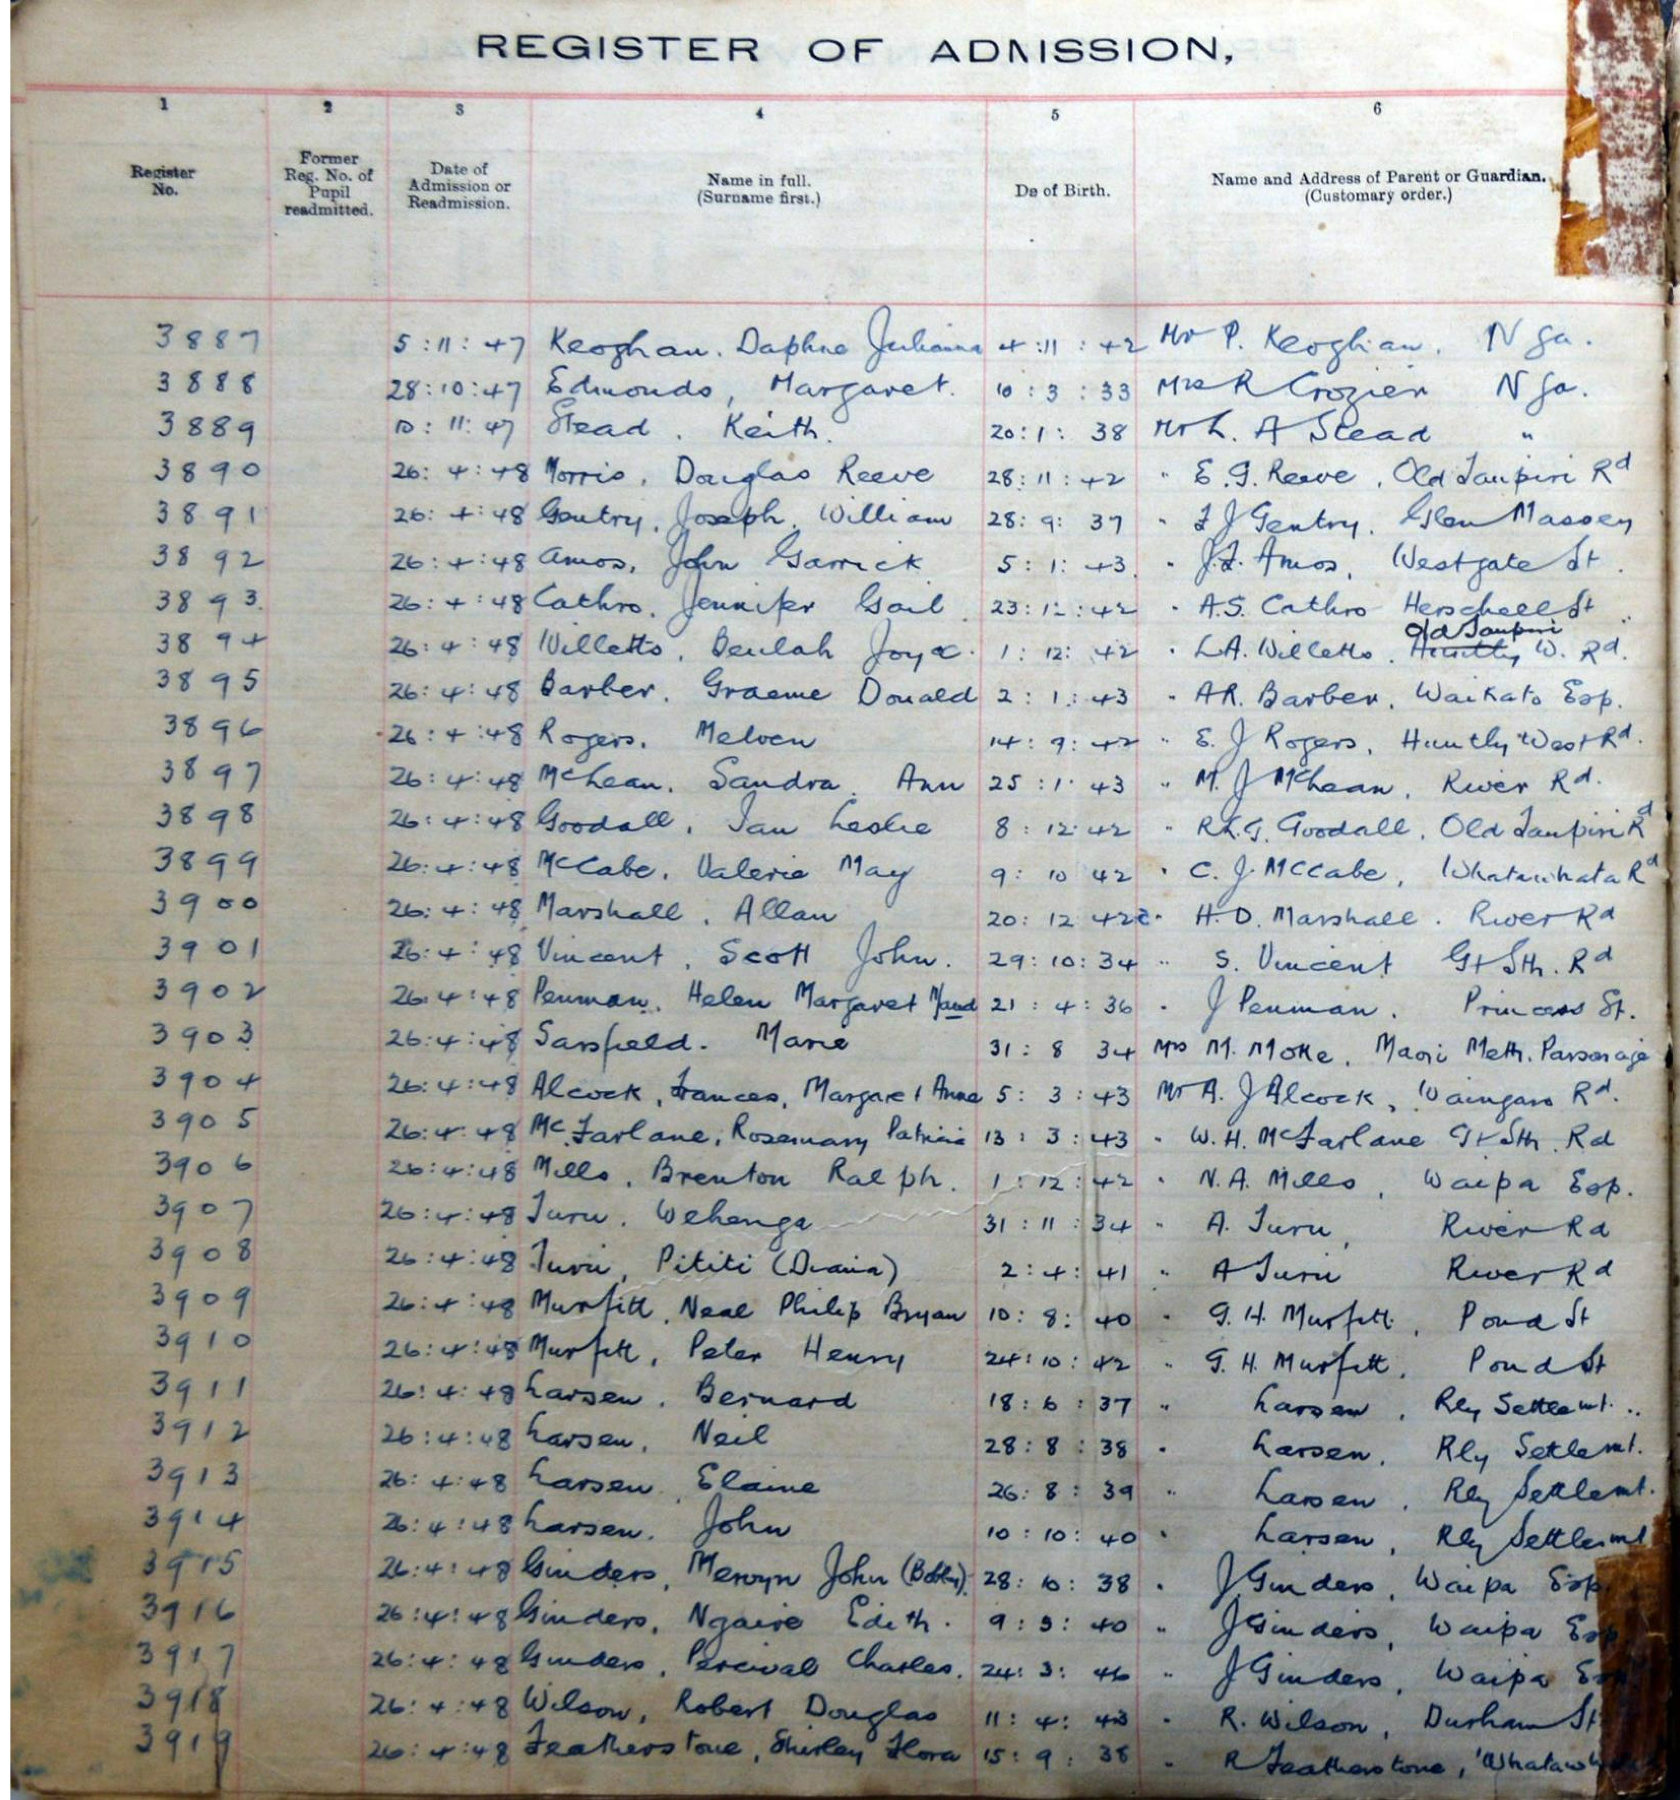 REGISTER OF ADMISSION,
1 2 3 4 5 6
Register No. Former Reg. No. of Pupil readmitted. Date of Admission or Readmission. Name in full. (Surname first.) De of Birth. Name and Address of Parent or Guardian. (Customary order.)
3887 5:11:47 Keoghan. Daphne Julianna 4:11:42 Mr P. Keoghan. Nga.
3888 28:10:47 Edmonds, Margaret. 10:3:33 Mrs R Crozier Nga.
3889 10:11:47 Stead. Keith. 20:1:38 Mr L. A Stead "
3890 26:4:48 Morris, Douglas Reeve 28:11:42 " E.G. Reeve, Old Taupiri Rd
3891 26:4:48 Gentry, Joseph. William 28:9:37 " F J Gentry. Glen Massey
3892 26:4:48 Amos, John Garrick 5:1:43 " J.F. Amos, Westgate St.
3893. 26:4:48 Cathro. Jennifer Gail 23:12:42 " A.S. Cathro Herschell St
3894 26:4:48 Willetts, Beulah Joyce. 1:12:42 " L.A. Willetts. Old Taupiri Huntly W. Rd.
3895 26:4:48 Barber. Graeme Donald 2:1:43 " A.R. Barber, Waikato Esp.
3896 26:4:48 Rogers. Melven 14:9:42 " E. J Rogers, Huntly West Rd.
3897 26:4:48 McLean. Sandra Ann 25:1:43 " M. J McLean, River Rd.
3898 26:4:48 Goodall, Ian Leslie 8:12:42 " R.L.G. Goodall, Old Taupiri Rd
3899 26:4:48 McCabe, Valerie May 9:10 42 " C. J. McCabe, Whatawhata Rd
3900 26:4:48 Marshall, Allan 20:12 42 " H.D. Marshall. River Rd
3901 26:4:48 Vincent, Scott John. 29:10:34 " S. Vincent Gt Sth. Rd
3902 26:4:48 Penman. Helen Margaret Maud 21:4:36 " J Penman. Princess St.
3903 26:4:48 Sarsfield. Marie 31:8 34 Mrs M. Moke. Maori Meth. Parsonage
3904 26:4:48 Alcock, Frances, Margaret Anne 5:3:43 Mr A. J Alcock, Waingaro Rd.
3905 26:4:48 McFarlane, Rosemary Patricia 13:3:43 " W.H. McFarlane Gt Sth. Rd
3906 26:4:48 Mills, Brenton Ralph. 1:12:42 " N.A. Mills, Waipa Esp.
3907 26:4:48 Turu. Wehenga 31:11:34 " A. Turu, River Rd
3908 26:4:48 Turu, Pititi (Diana) 2:4:41 " A Turu River Rd
3909 26:4:48 Murfitt, Neal Philip Bryan 10:8:40 " G.H. Murfitt, Pond St
3910 26:4:48 Murfitt, Peter Henry 24:10:42 " G.H. Murfitt, Pond St
3911 26:4:48 Larsen, Bernard 18:6:37 " Larsen, Rly Settlemt.
3912 26:4:48 Larsen, Neil 28:8:38 " Larsen, Rly Settlemt.
3913 26:4:48 Larsen, Elaine 26:8:39 " Larsen, Rly Settlemt.
3914 26:4:48 Larsen. John 10:10:40 " Larsen, Rly Settlemt
3915 26:4:48 Ginders, Mervyn John (Bobby) 28:10:38 " J Ginders, Waipa Esp.
3916 26:4:48 Ginders, Ngaire Edith. 9:3:40 " J Ginders, Waipa Esp
3917 26:4:48 Ginders, Percival Charles. 24:3:46 " J Ginders, Waipa Esp
3918 26:4:48 Wilson, Robert Douglas 11:4:43 " R. Wilson, Durham St
3919 26:4:48 Featherstone, Shirley Flora 15:9:38 " R Featherstone,